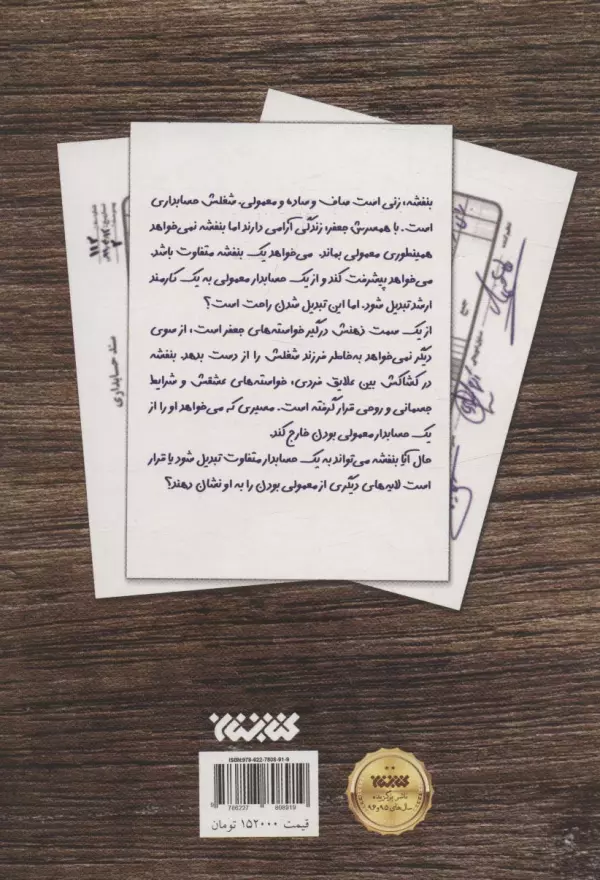 بنفشه، زنی است صاف و ساده و معمولی. شغلش حسابداری
است. با همسرش جعفر، زندگی آرامی دارند اما بنفشه نمی‌خواهد
همینطوری معمولی بماند. می‌خواهد یک بنفشه متفاوت باشد.
می‌خواهد پیشرفت کند و از یک حسابدار معمولی به یک کارمند
ارشد تبدیل شود. اما این تبدیل شدن راحت است؟
از یک سمت ذهنش درگیر خواسته‌های جعفر است، از سوی
دیگر نمی‌خواهد به‌خاطر فرزند شغلش را از دست بدهد. بنفشه
در کشاکش بین علایق فردی، خواسته‌های عشقش و شرایط
جسمانی و روحی قرار گرفته است. مسیری که می‌خواهد او را از
یک حسابدار معمولی بودن خارج کند.
حال آیا بنفشه می‌تواند به یک حسابدار متفاوت تبدیل شود یا قرار
است لایه‌های دیگری از معمولی بودن را به او نشان دهند؟
سند حسابداری
کتابستان
ISBN:978-622-7808-91-9
9 786227 808919
قیمت ۱۵۲۰۰۰ تومان
کتابستان
ناشر برگزیده
سال‌های ۹۵ و ۹۶